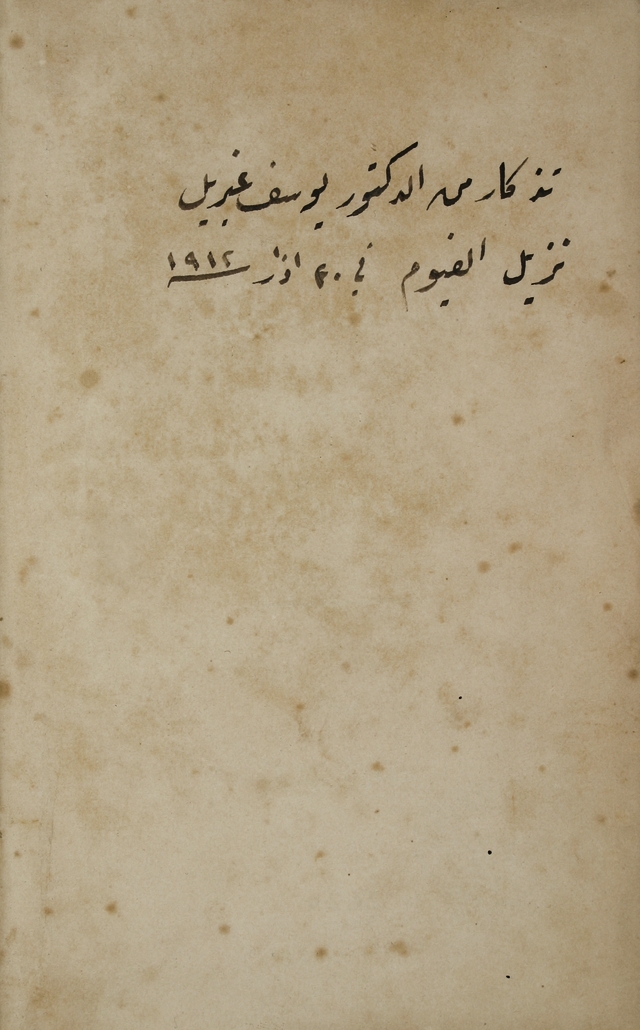 تذكار من الدكتور يوسف غبريل
نزيل الفيوم في ٢٠ اذار ١٩١٢